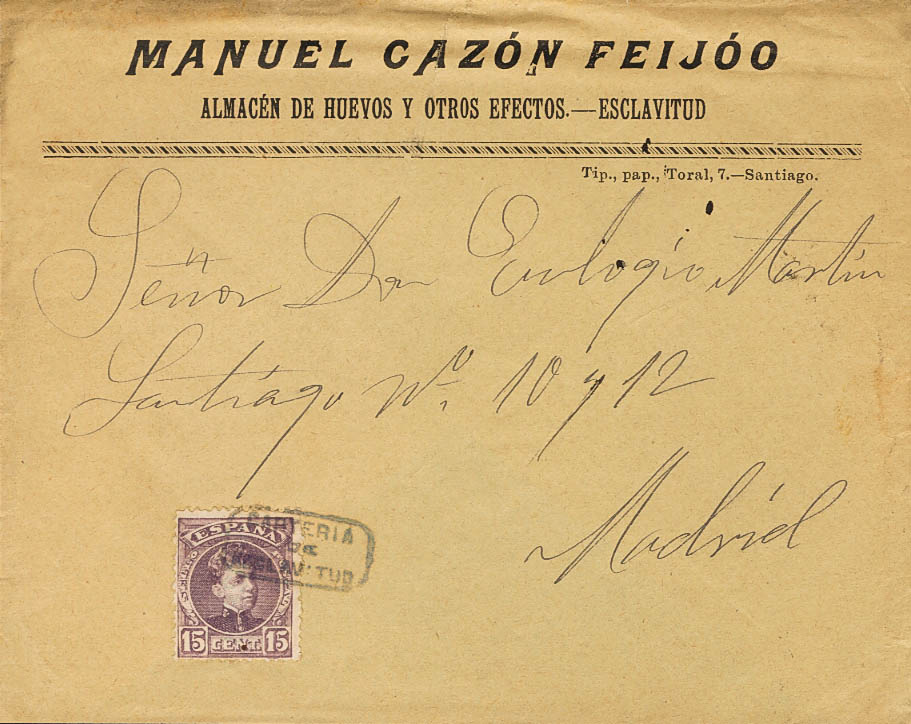 MANUEL CAZÓN FEIJÓO
ALMACÉN DE HUEVOS Y OTROS EFECTOS.—ESCLAVITUD
Tip., pap., Toral, 7.—Santiago.
Señor Don Eulogio Martín
Santiago Nº 10 y 12
Madrid
CARTERIA
DE
ESCLAVITUD
ESPAÑA
15 CENT 15